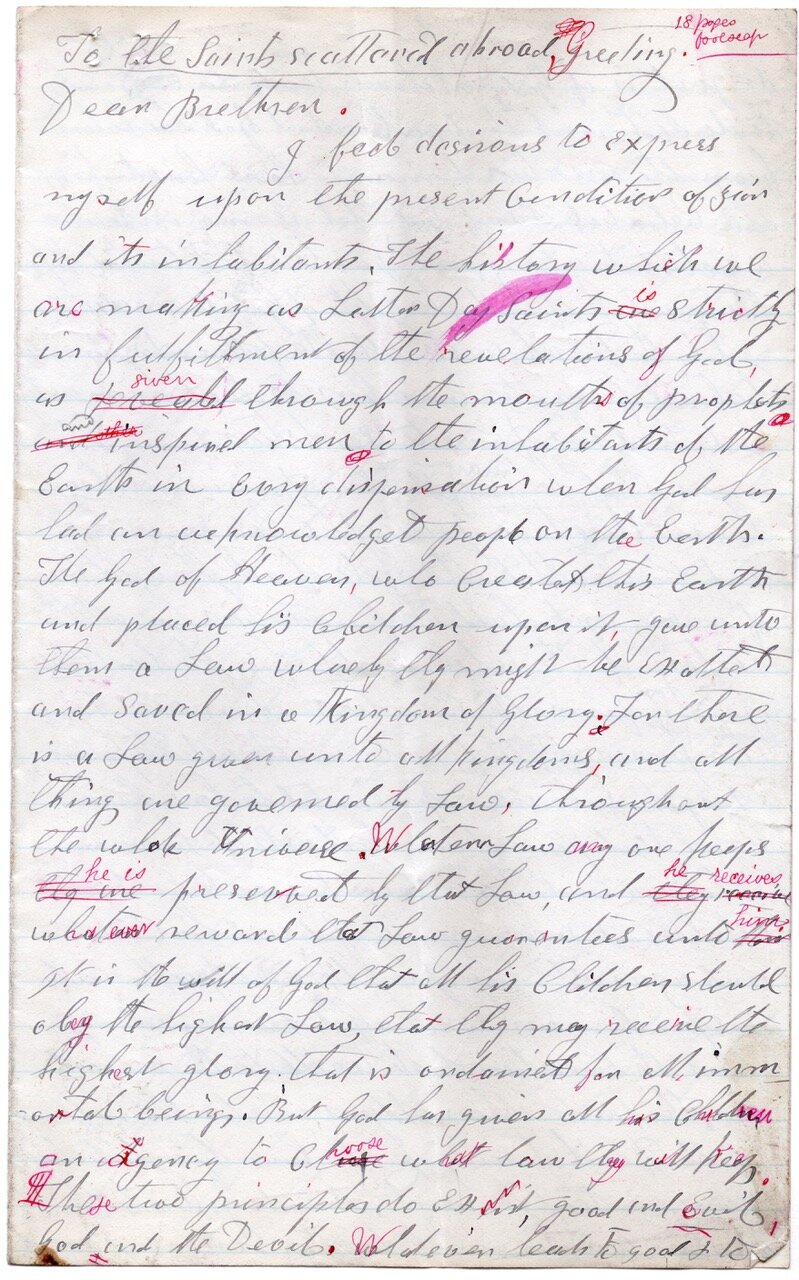 18 pages
foolscap
To the Saints scattard abroad, Greeting.
Dear Brethren.
I feel desirous to Express
myself upon the present Condition of Zion
and its inhabitants. The history which we
are making as Latter Day Saints are is strictly
in fulfillment of the revelations of God,
as reveald given through the mouths of prophets
and inspired men, to the inhabitants of the
Earth in every dispensation when God has
had an acknowledged people on the Earth.
The God of Heaven, who Created this Earth
and placed his Children upon it, gave unto
them a Law whereby they might be Exalted
and Saved in a Kingdom of Glory. For there
is a Law given unto all Kingdoms, and all
thing are governed by Law, throughout
the whole Universe. Whatever Law any one keeps
they are he is preserved by that Law, and they he receive receives
whatever reward that Law guarantees unto him.
It is the will of God that all his Children should
obey the highest Law, that they may receive the
highest glory that is ordained for all imm-
ortal beings. But God has given all his Children
an agency to Choose what law they will keep.
These two principles do Exist, good and Evil,
God and the Devil. Whatever leads to good & to